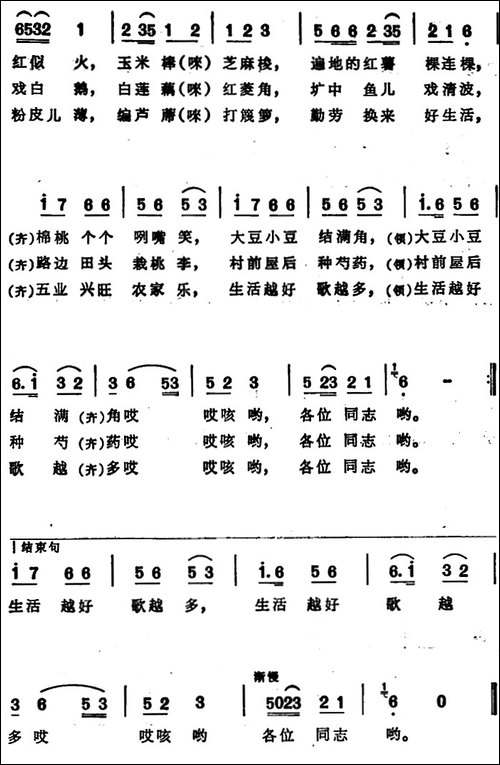 6532 1 | 2 35 1 2 | 1 2 3 | 5 6 6 6 2 35 | 2 1 6 |
红似 火，玉米 棒(唻) 芝麻梭，遍地的红薯 棵连棵，
戏白 鹅，白莲 藕(唻) 红菱角，圹中 鱼儿 戏清波，
粉皮儿 薄，编芦 蓆(唻) 打簸箩，勤劳 换来 好生活，
i 7 6 6 | 5 6 5 3 | i 7 6 6 | 5 6 5 3 | i. 6 5 6 |
(齐)棉桃 个个 咧嘴 笑，大豆小豆 结满角，(领)大豆小豆
(齐)路边 田头 栽桃 李，村前屋后 种芍药，(领)村前屋后
(齐)五业 兴旺 农家 乐，生活越好 歌越多，(领)生活越好
6. i 3 2 | 3 6 53 | 5 2 3 | 5 23 2 1 | 6 - :‖
结 满 (齐)角哎 哎咳 哟，各位 同志 哟。
种 芍 (齐)药哎 哎咳 哟，各位 同志 哟。
歌 越 (齐)多哎 哎咳 哟，各位 同志 哟。
结束句
i 7 6 6 | 5 6 5 3 | i. 6 5 6 | 6. i 3 2 |
生活 越好 歌越 多，生活 越好 歌 越
渐慢
3 6 53 | 5 2 3 | 5023 2 1 | 6 0 ‖
多哎 哎咳 哟 各位 同志 哟。